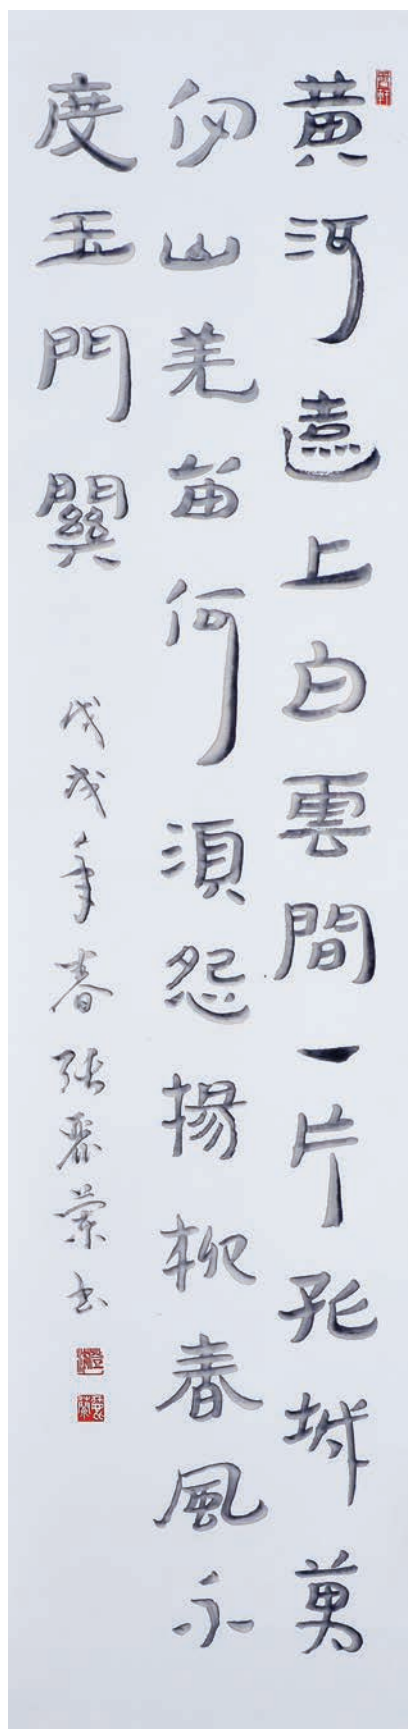 黄河遠上白雲間一片孤城萬
仞山羌笛何湏怨揚柳春風不
度玉門關
戊戌年春張